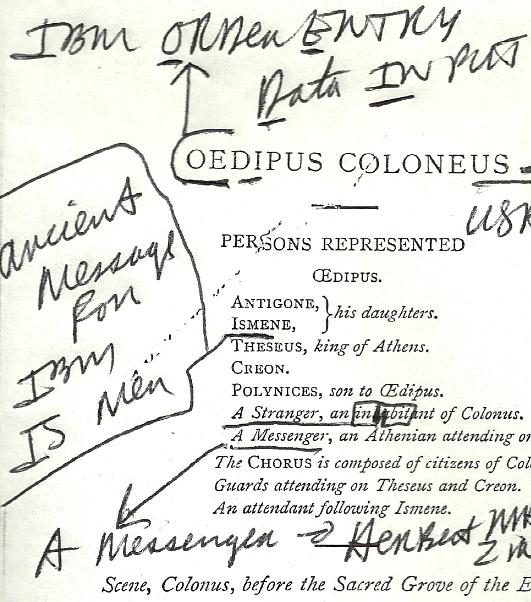 IBM ORDER ENTRY
Data INPUT
OEDIPUS COLONEUS
ancient
Message
For
IBM
IS Men
PERSONS REPRESENTED
ŒDIPUS.
ANTIGONE,
ISMENE,
} his daughters.
THESEUS, king of Athens.
CREON.
POLYNICES, son to Œdipus.
A Stranger, an inhabitant of Colonus.
A Messenger, an Athenian attending on
The CHORUS is composed of citizens of Col
Guards attending on Theseus and Creon.
An attendant following Ismene.
A Messenger
Scene, Colonus, before the Sacred Grove of the E